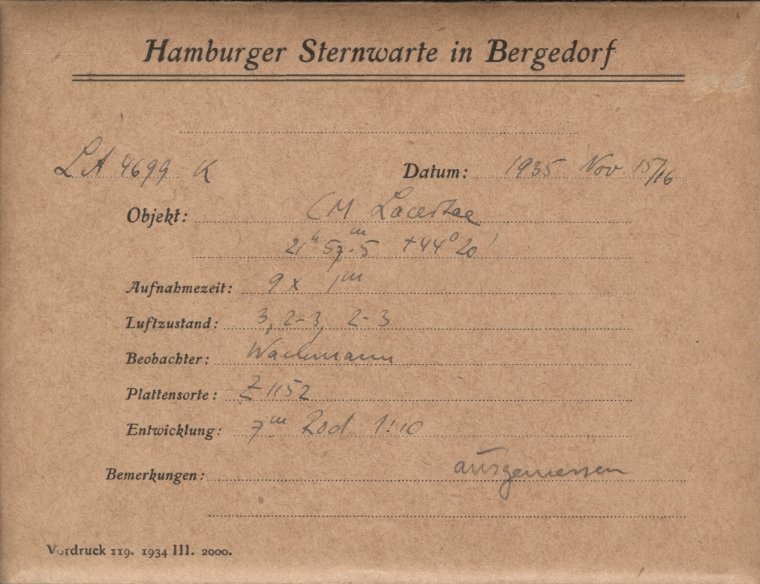 Hamburger Sternwarte in Bergedorf
LA 4699 K Datum: 1935 Nov. 15/16
Objekt: CM Lacertae
21ʰ 57ᵐ.5 +44° 20'
Aufnahmezeit: 9 x 1ᵐ
Luftzustand: 3, 2-3, 2-3
Beobachter: Wachmann
Plattensorte: Z 1152
Entwicklung: 7ᵐ Rod 1:10
Bemerkungen: ausgemessen
Vordruck 119. 1934 III. 2000.